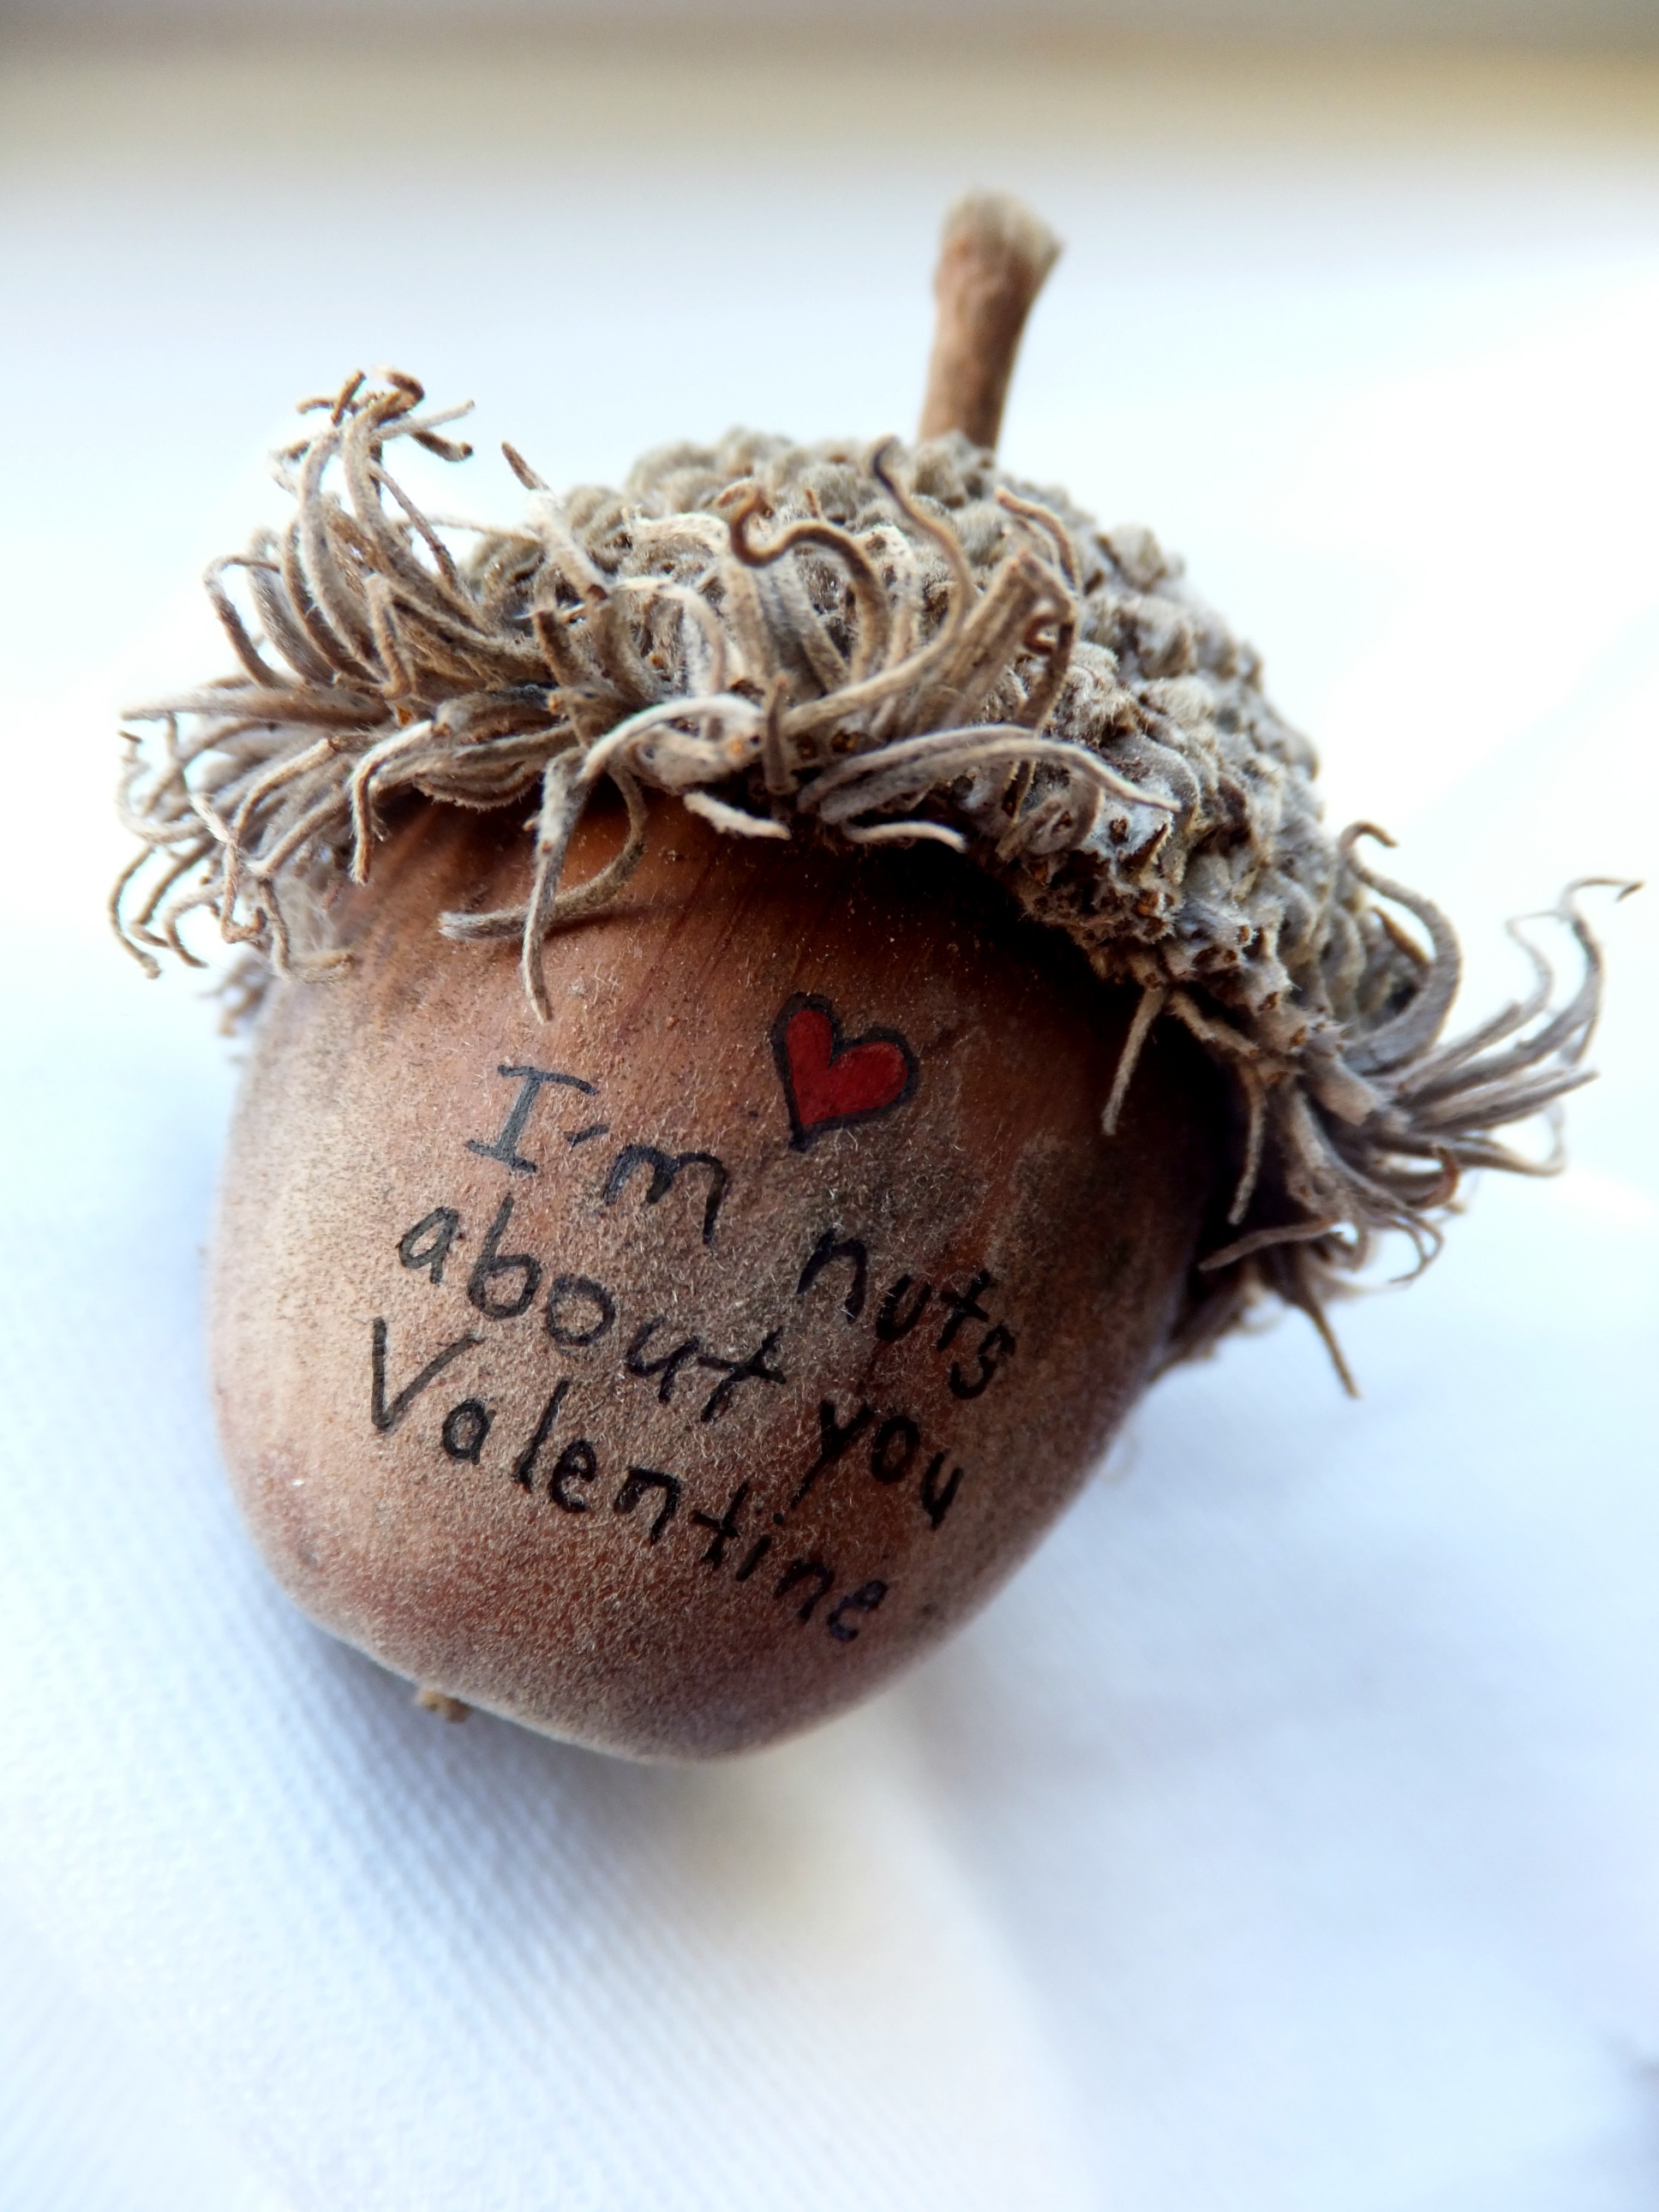 I'm nuts
about you
Valentine